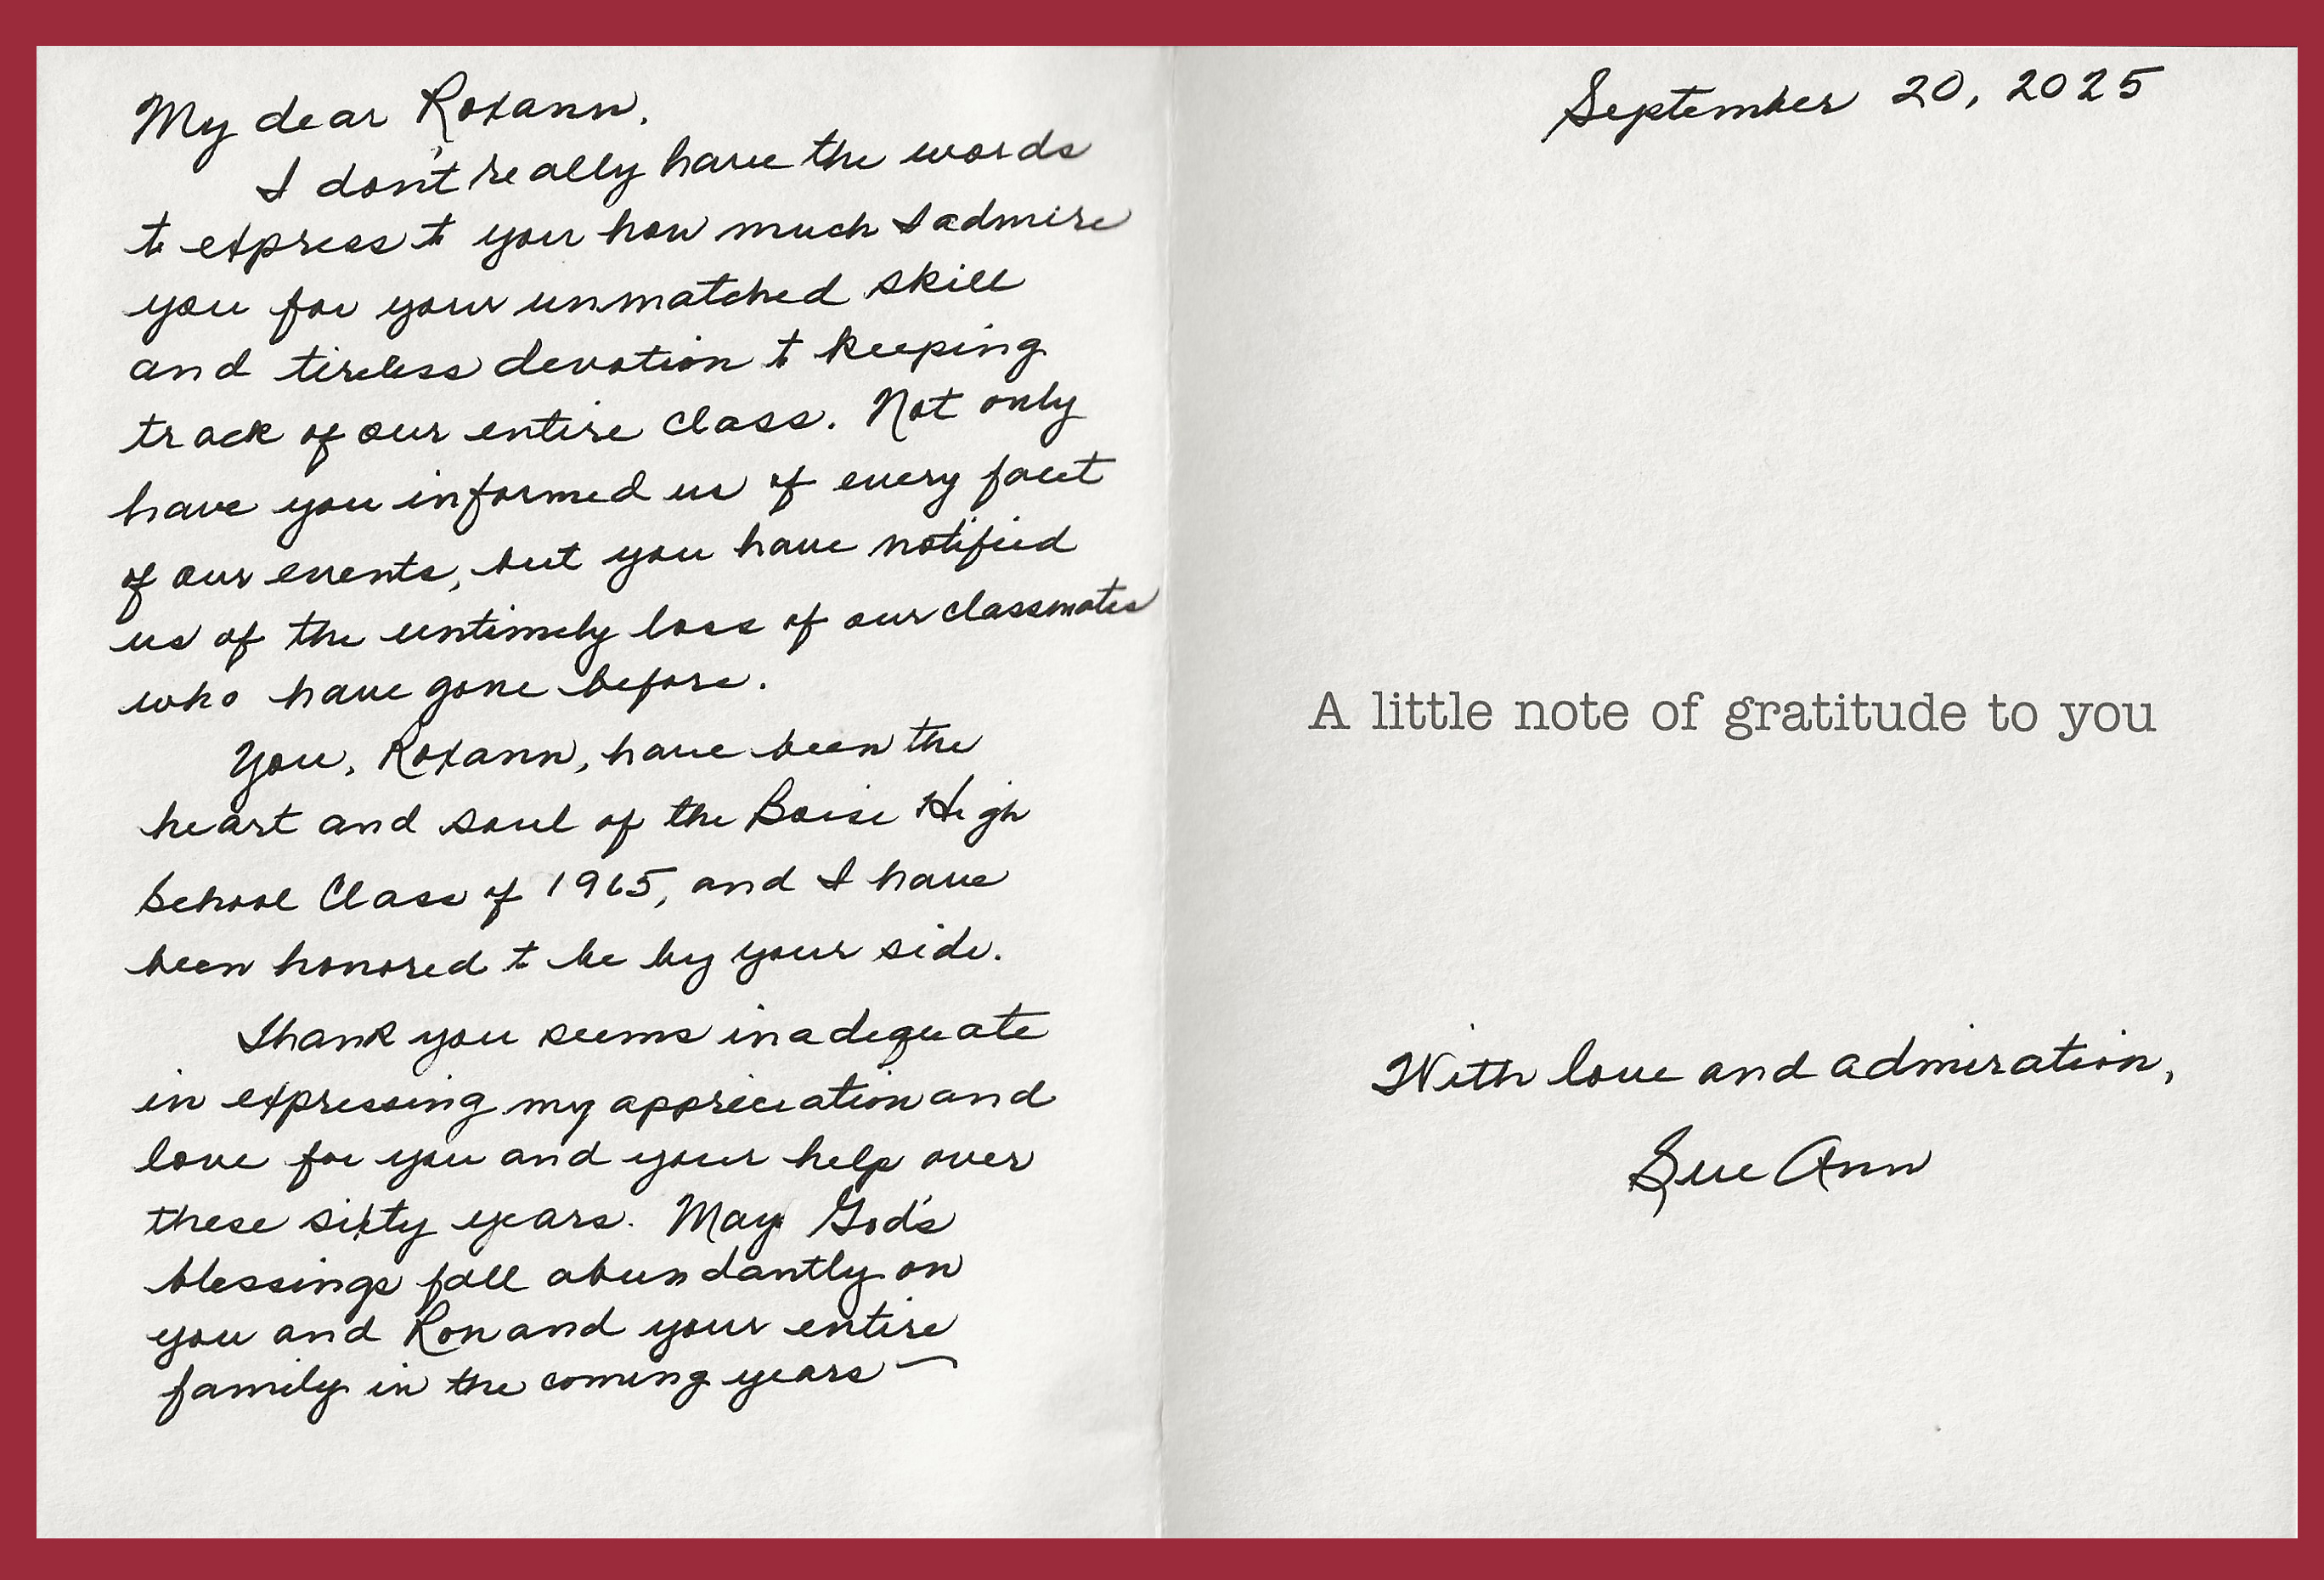 My dear Roxann,
I don't really have the words
to express to you how much I admire
you for your unmatched skill
and tireless devotion to keeping
track of our entire class. Not only
have you informed us of every facet
of our events, but you have notified
us of the untimely loss of our classmates
who have gone before.
You, Roxann, have been the
heart and soul of the Boise High
School Class of 1965, and I have
been honored to be by your side.
Thank you seems inadequate
in expressing my appreciation and
love for you and your help over
these sixty years. May God's
blessings fall abundantly on
you and Ron and your entire
family in the coming years —
September 20, 2025
A little note of gratitude to you
With love and admiration,
Sue Ann